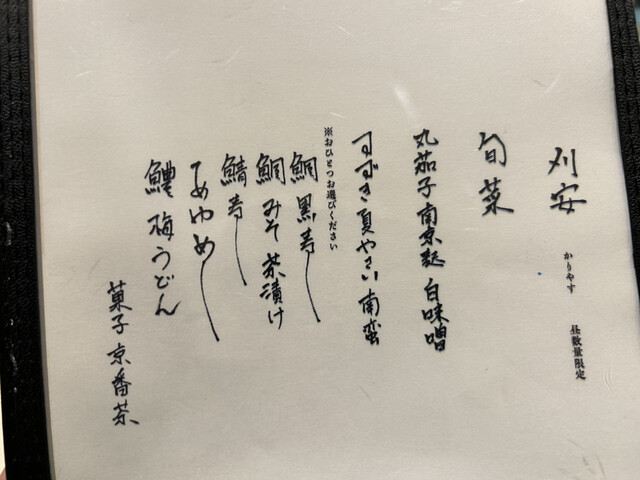 刈安 かりやす 昼数量限定
旬菜
丸茄子 南京麩 白味噌
すずき夏やさい 南蛮
※おひとつお選びください
鯛 黒寿し
鯛 みそ 茶漬け
鯖寿し
あゆめし
鱧 梅うどん
菓子 京番茶